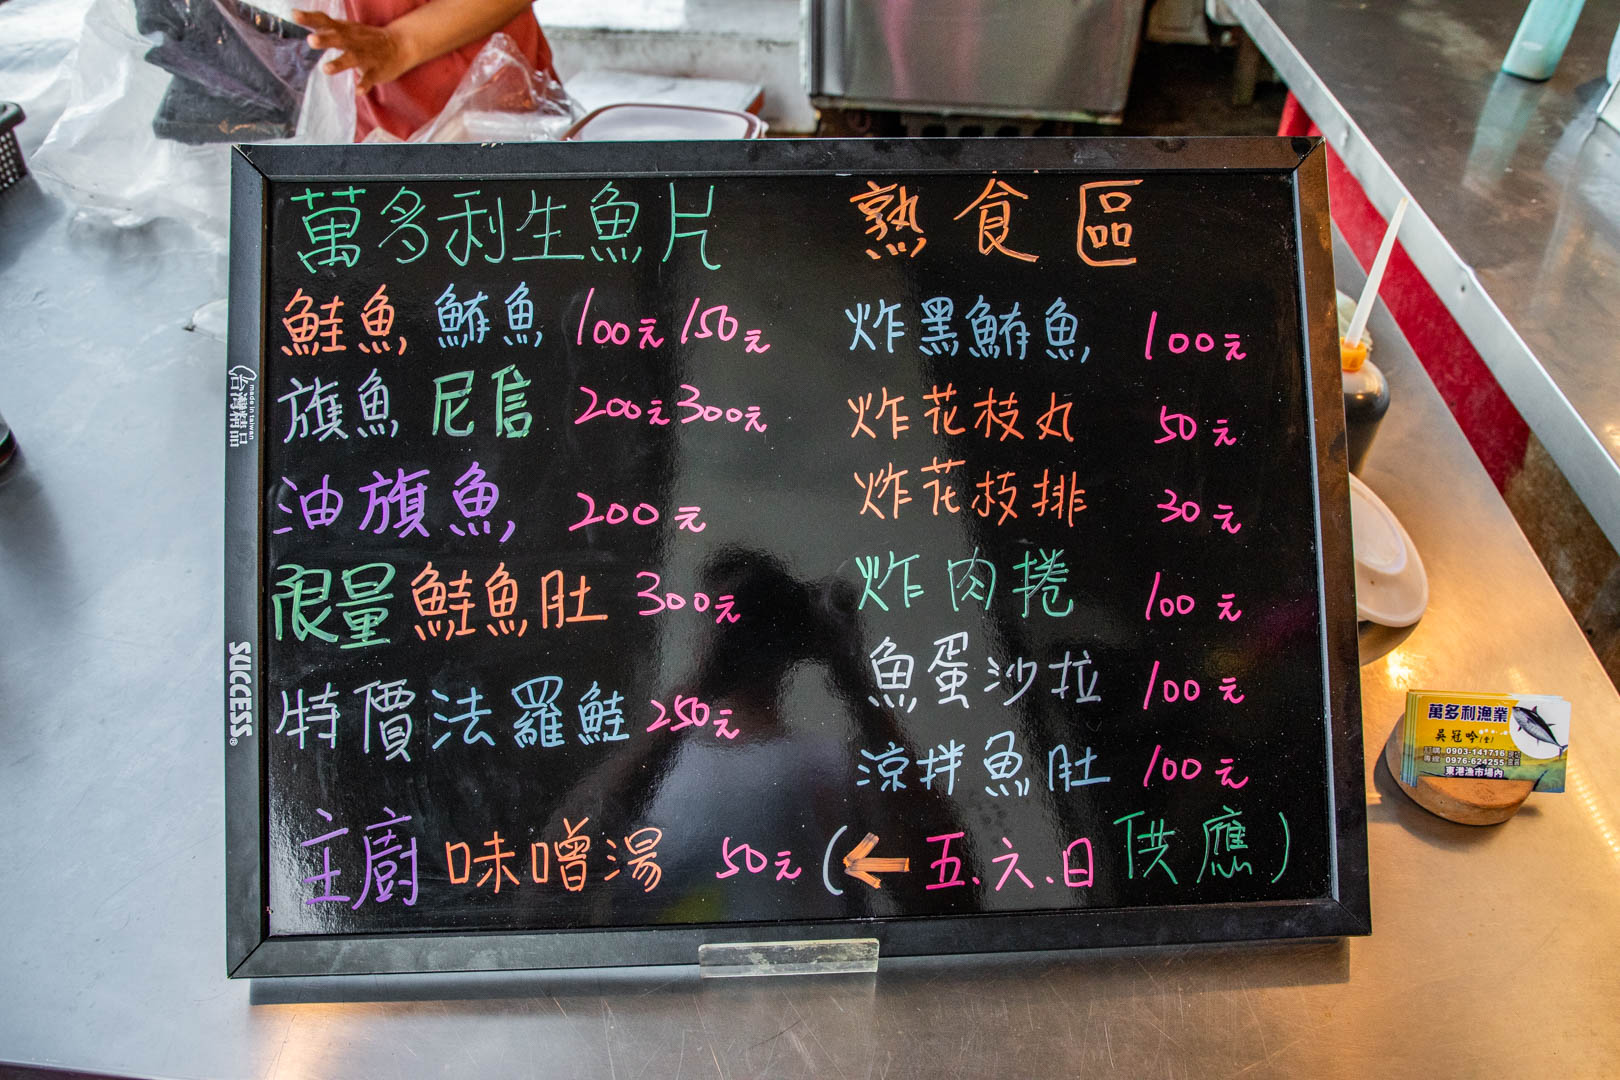 萬多利生魚片
鮭魚 鮪魚 100元 150元
旗魚 尼信 200元 300元
油旗魚 200元
限量 鮭魚肚 300元
特價 法羅鮭 250元
主廚 味噌湯 50元 (← 五.六.日 供應)
熟食區
炸黑鮪魚 100元
炸花枝丸 50元
炸花枝排 30元
炸肉捲 100元
魚蛋沙拉 100元
涼拌魚肚 100元
made in taiwan
台灣精品
SUCCESS®
萬多利漁業
吳冠吟
訂購 0903-141716
專線 0976-624255
東港漁市場內